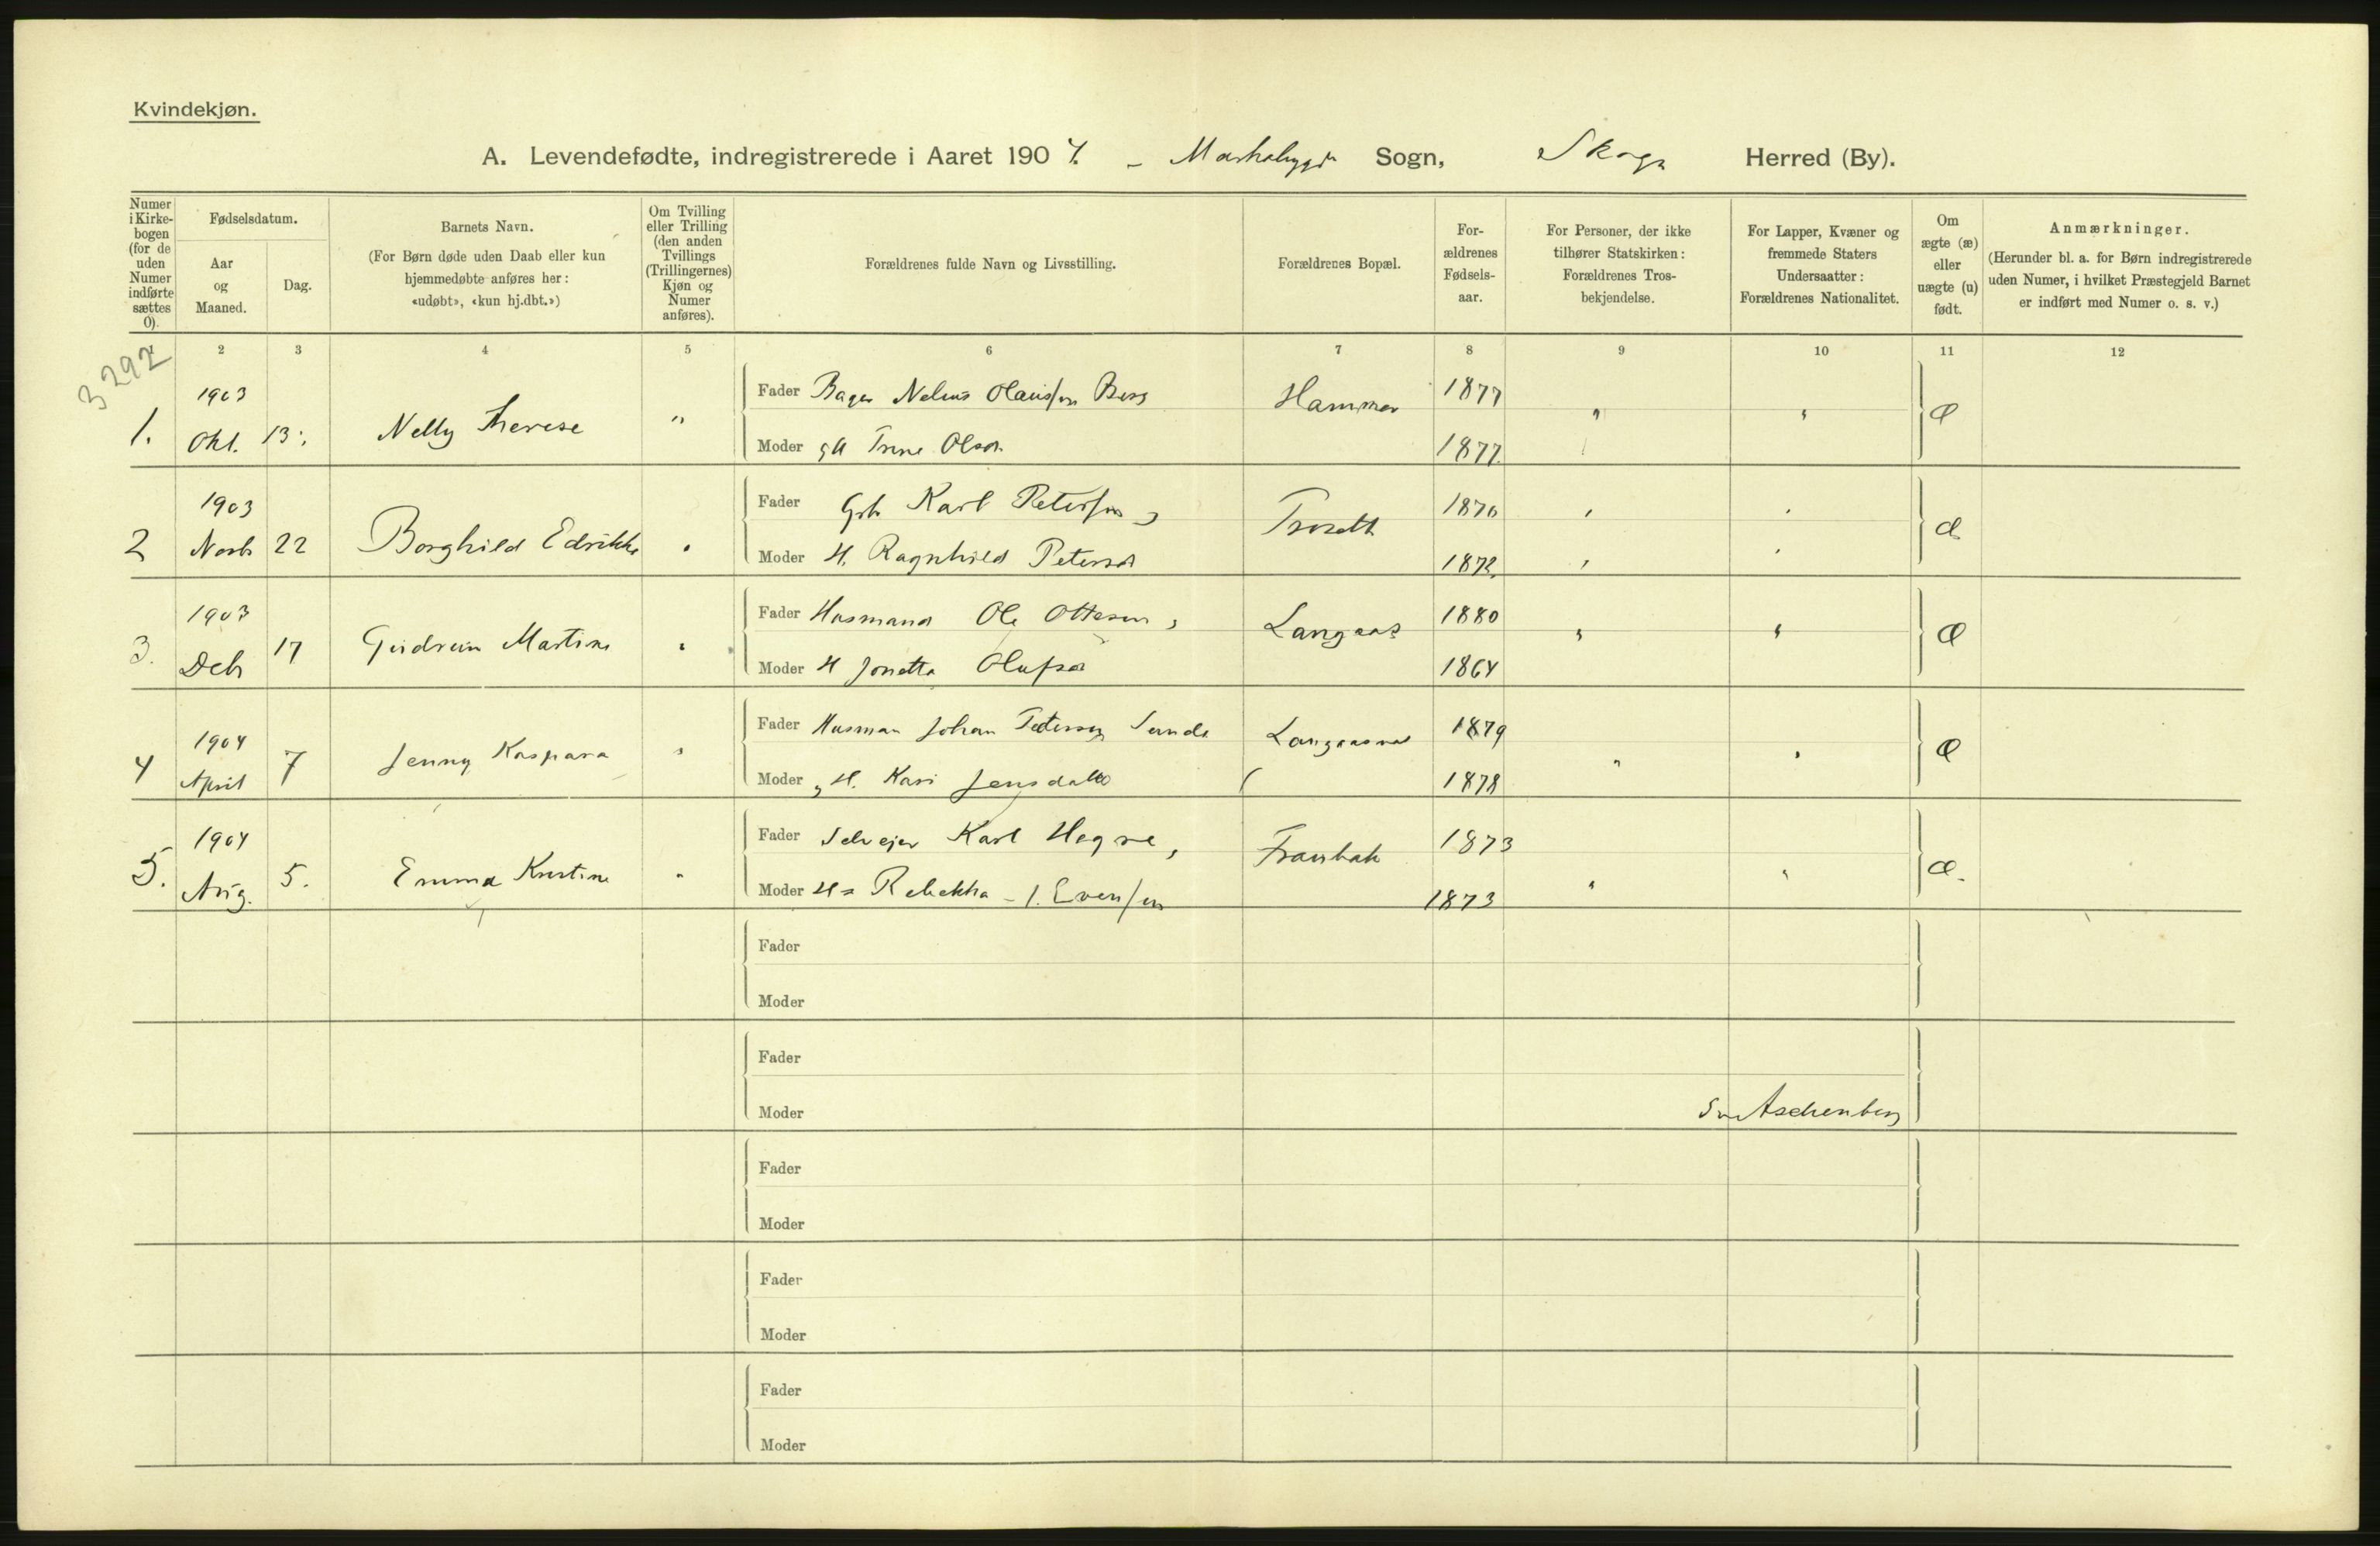 Kvindekjøn.
A. Levendefødte, indregistrerede i Aaret 1904. - Markabygde Sogn, Skogn Herred (By).
Numer i Kirkebogen (for de uden Numer indførte sættes 0).
Fødselsdatum.
Aar og Maaned.
Dag.
Barnets Navn.
(For Børn døde uden Daab eller kun hjemmedøbte anføres her: «udøbt», «kun hj.dbt.»)
Om Tvilling eller Trilling (den anden Tvillings (Trillingernes) Kjøn og Numer anføres).
Forældrenes fulde Navn og Livsstilling.
Forældrenes Bopæl.
Forældrenes Fødselsaar.
For Personer, der ikke tilhører Statskirken: Forældrenes Trosbekjendelse.
For Lapper, Kvæner og fremmede Staters Undersaatter: Forældrenes Nationalitet.
Om ægte (æ) eller uægte (u) født.
Anmærkninger.
(Herunder bl. a. for Børn indregistrerede uden Numer, i hvilket Præstegjeld Barnet er indført med Numer o. s. v.)
2 3 4 5 6 7 8 9 10 11 12
3292
1. 1903 Okt. 13. Nelly Therese " Fader Bager Nelius Olaus/sen Berg Hammer 1877 " " æ
Moder Trine Olsdr 1877.
2 1903 Novb 22 Borghild Edrikke " Fader Gb Karl Petersen 1876 " " æ
Moder H. Ragnhild Petersdr 1872.
3. 1903 Decb 17 Gudrun Martine " Fader Husmand Ole Ottesen, Langaas 1880 " " æ
Moder H Jonetta Olufsdr 1864
4 1904 April 7 Jenny Kaspara " Fader Husman Johan Petersen Sunde 1879 " " æ
Moder H. Kari Jensdatter 1878
5. 1904 Aug. 5. Emma Kristine " Fader Selvejer Karl Hegre, 1873 " " æ.
Moder H= Rebekka - f. Evensen 1873
Fader
Moder
Fader
Moder Aschenberg
Fader
Moder
Fader
Moder
Fader
Moder